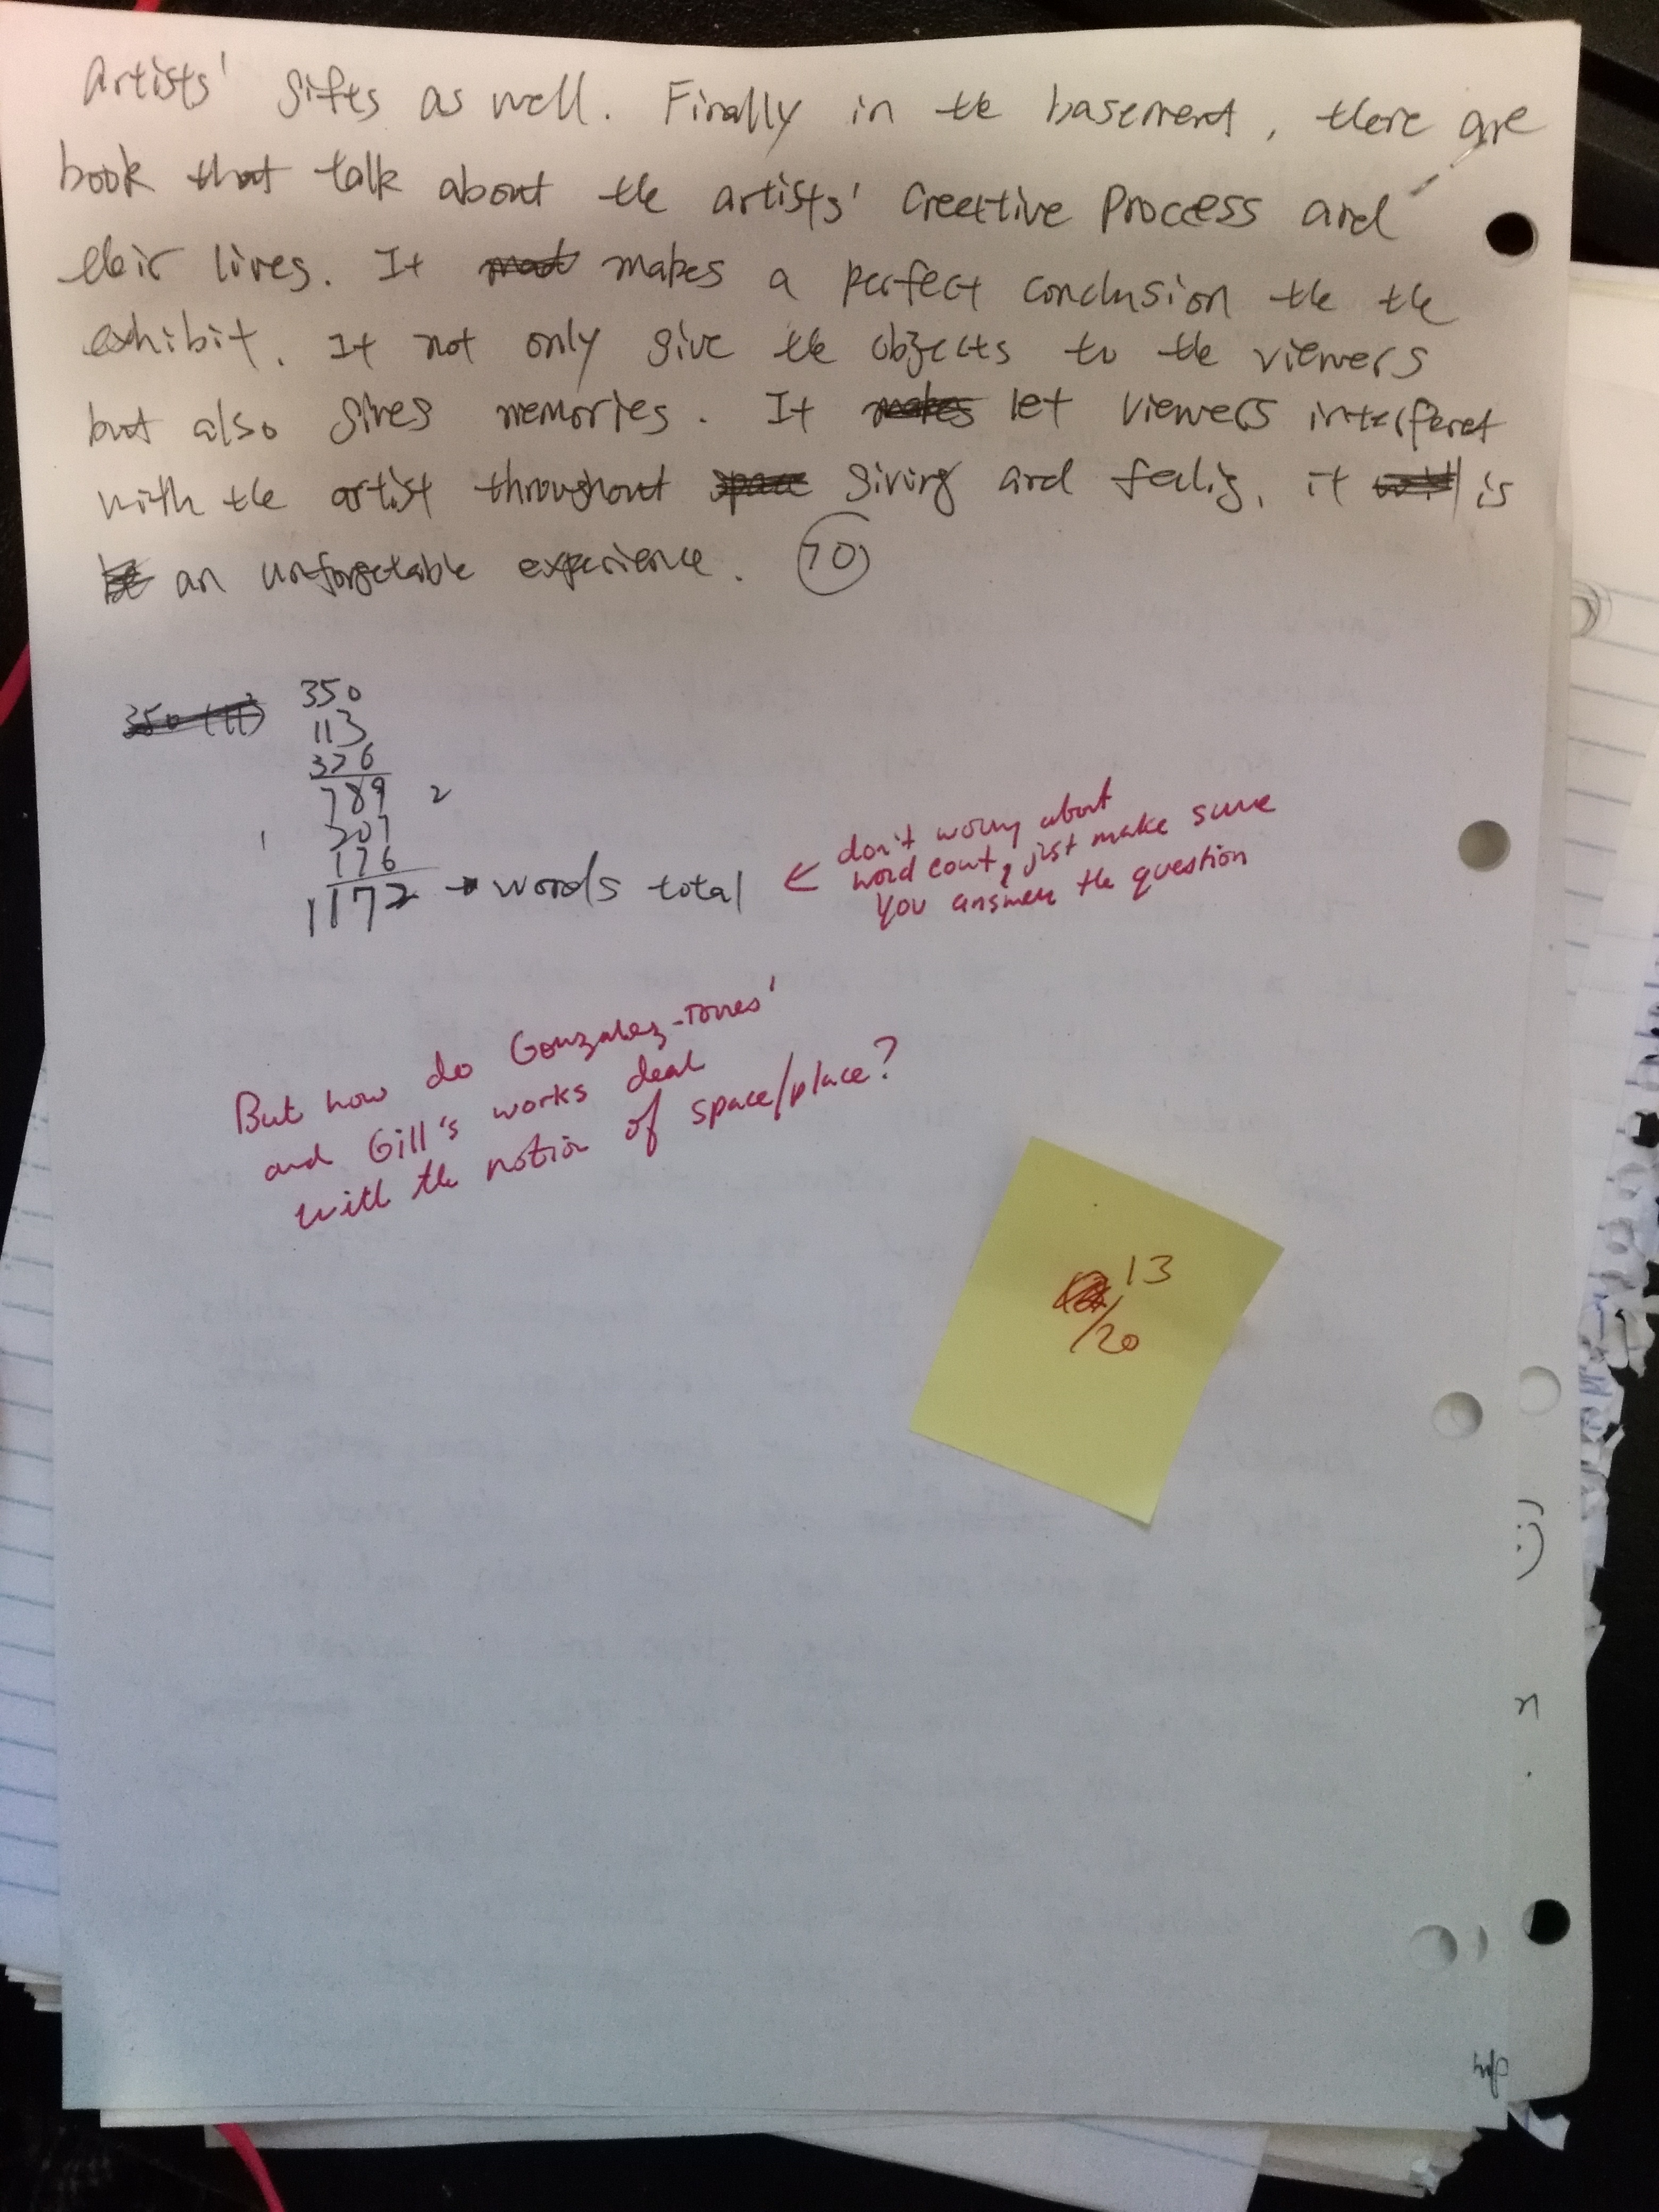 artists' gifts as well. Finally in the basement, there are
book that talk about the artists' Creative Process and
their lives. It makes a perfect conclusion the the
exhibit. It not only give the objects to the viewers
but also gives memories. It makes let viewers interferet
with the artist throughout space giving and feelig, it is
be an unforgetable experience. 70
350
350 (11)
113
326
789 2
1 207
176
1172 → words total
← don't worry about
word count, just make sure
you answer the question
But how do Gonzalez-Torres'
and Gill's works deal
with the notion of space/place?
13
/20
:)
n